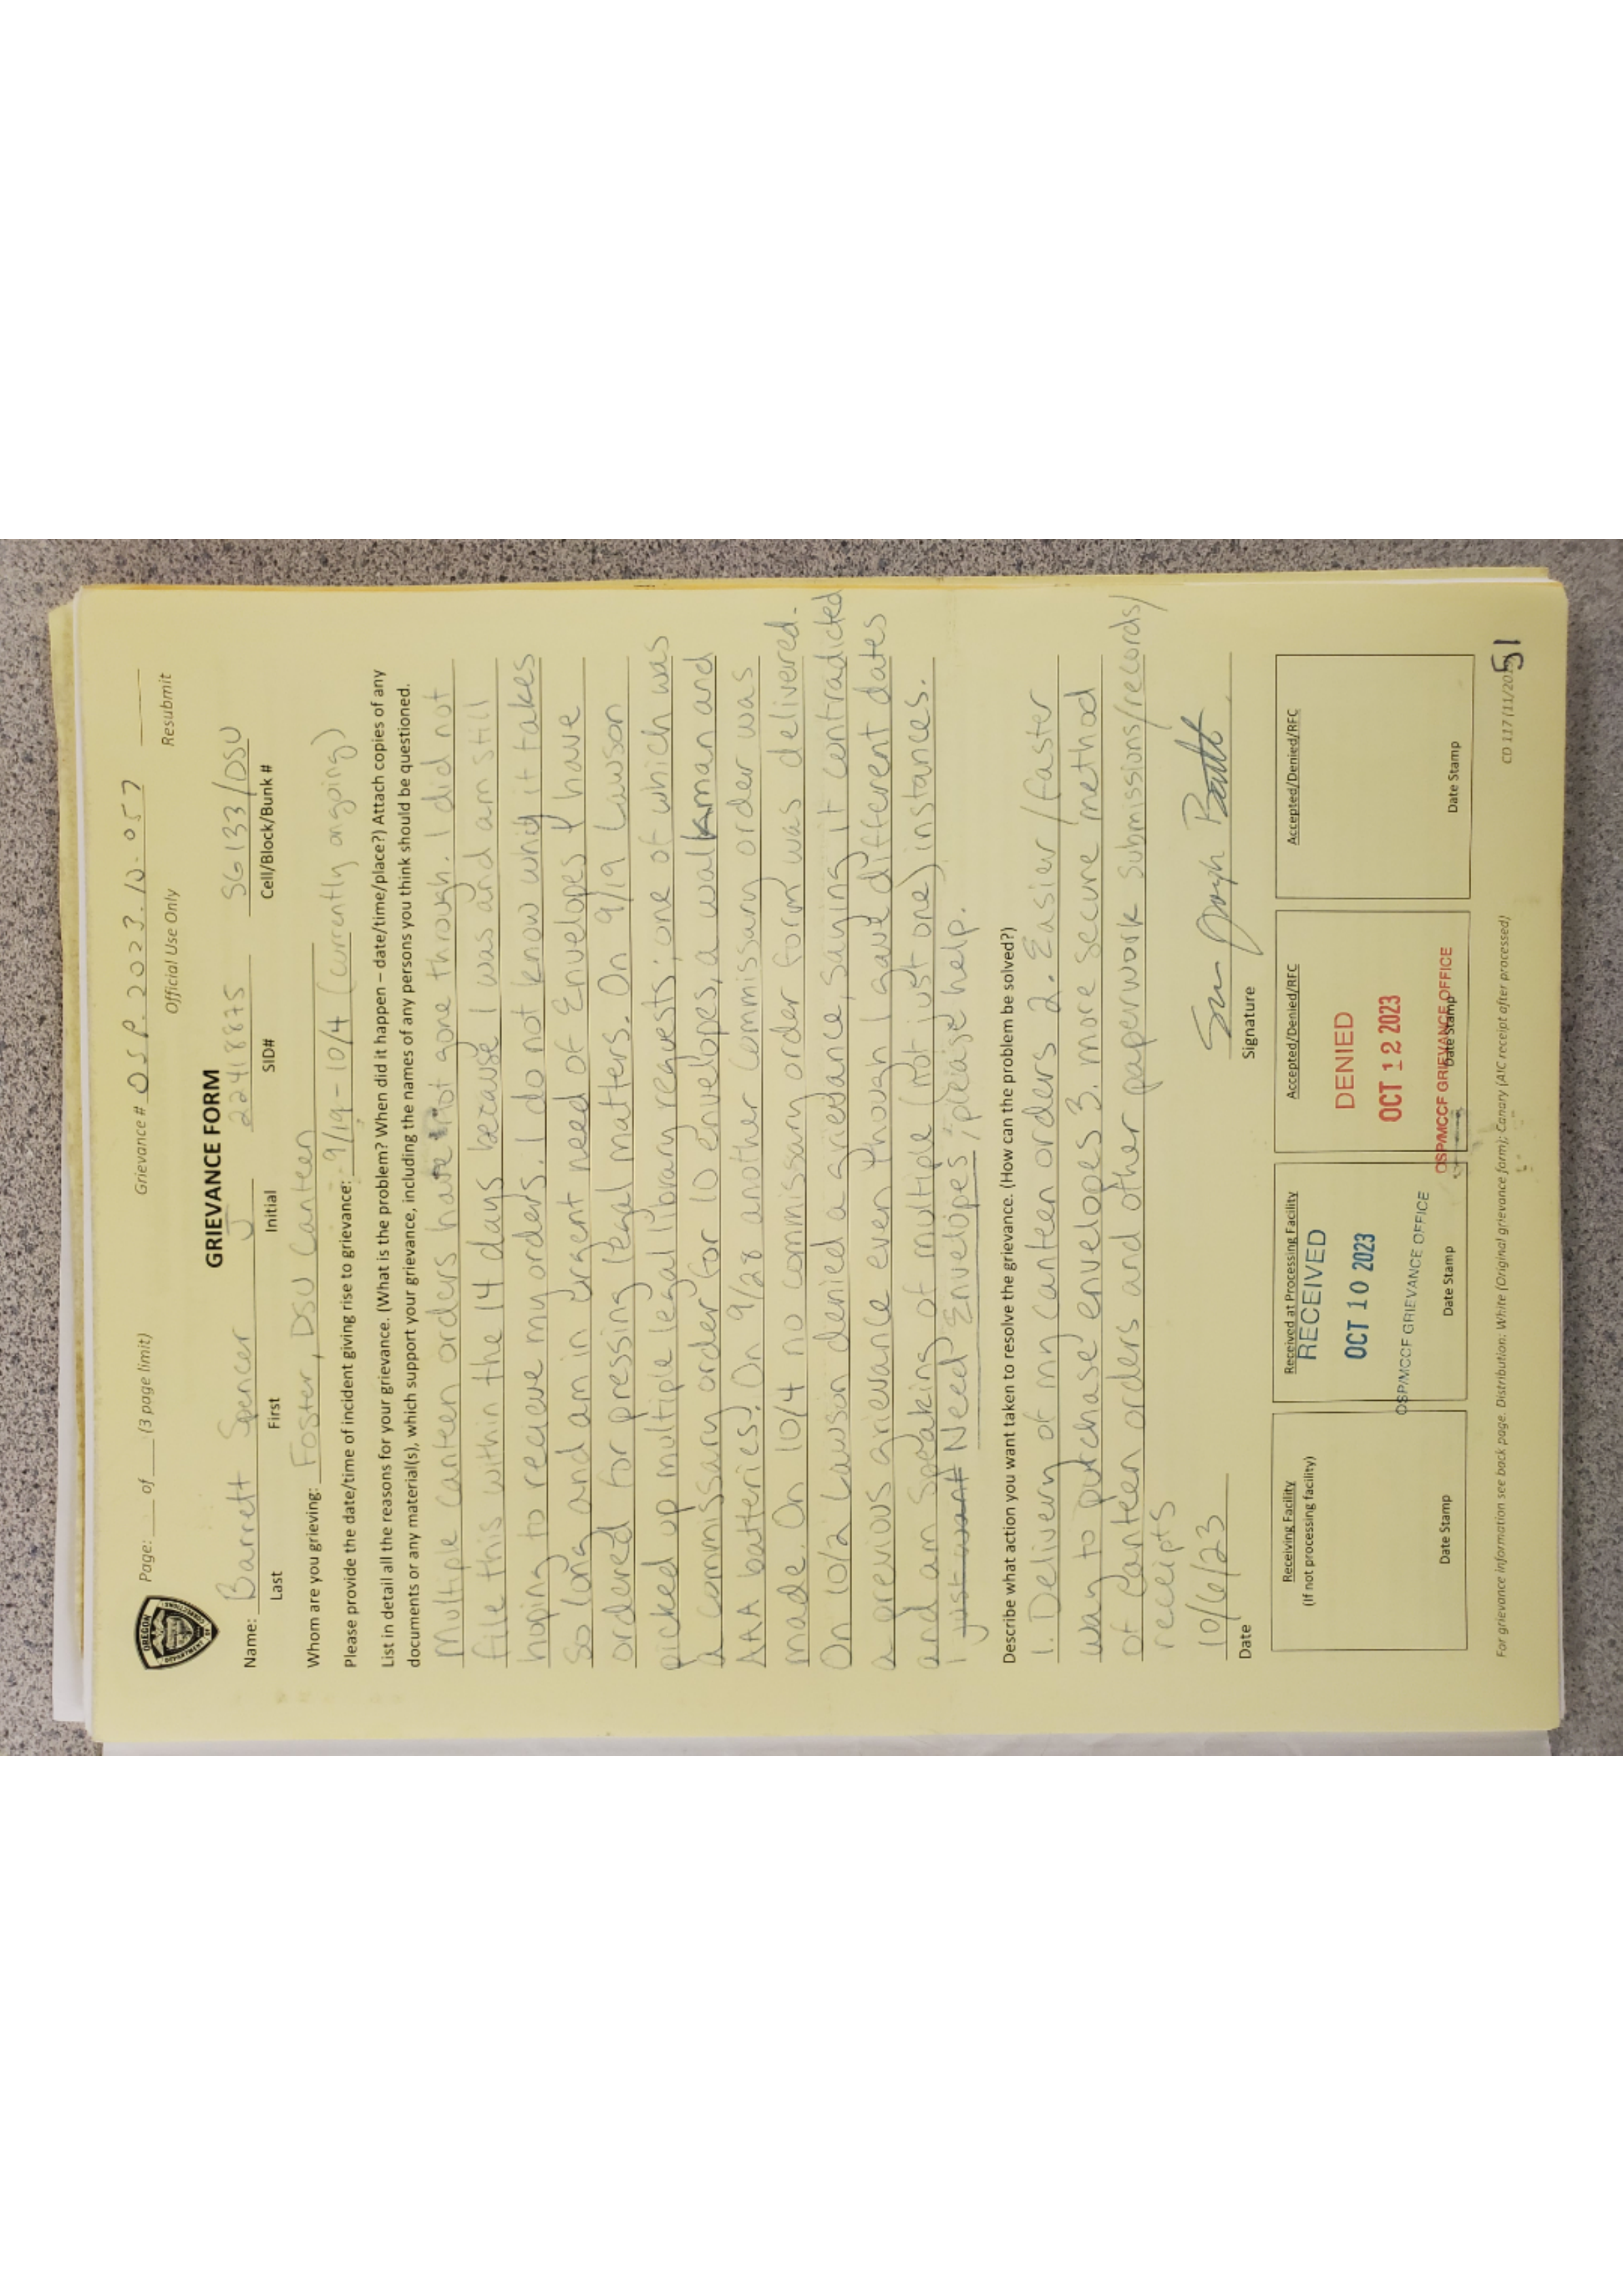 OREGON
DEPARTMENT OF
CORRECTIONS
Page: ___ of ___ (3 page limit)
Grievance # OSP.2023.10.057
Official Use Only
Resubmit
GRIEVANCE FORM
Name: Barrett Spencer J 22418875 SG133/DSU
Last First Initial SID# Cell/Block/Bunk #
Whom are you grieving: Foster, DSU Canteen
Please provide the date/time of incident giving rise to grievance: 9/19-10/4 (currently ongoing)
List in detail all the reasons for your grievance. (What is the problem? When did it happen – date/time/place?) Attach copies of any
documents or any material(s), which support your grievance, including the names of any persons you think should be questioned.
Multiple canteen orders have not gone through. I did not
file this within the 14 days because I was and am still
hoping to recieve my orders. I do not know why it takes
so long and am in urgent need of Envelopes I have
ordered for pressing legal matters. On 9/19 Lawson
picked up multiple legal library requests; one of which was
a commissary order for 10 envelopes, a walkman and
AAA batteries). On 9/28 another commissary order was
made. On 10/4 no commissary order form was delivered.
On 10/2 Lawson denied a grievance, saying it contradicted
a previous grievance even though I gave different dates
and am speaking of multiple (not just one) instances.
I just want Need Envelopes, please help.
Describe what action you want taken to resolve the grievance. (How can the problem be solved?)
1. Delivery of my canteen orders 2. Easier/faster
way to purchase envelopes 3. more secure method
of canteen orders and other paperwork submissions/records/
receipts
10/6/23
Date
Signature
Receiving Facility
(If not processing facility)
Date Stamp
Received at Processing Facility
RECEIVED
OCT 10 2023
OSP/MCCF GRIEVANCE OFFICE
Date Stamp
Accepted/Denied/RFC
DENIED
OCT 12 2023
OSP/MCCF GRIEVANCE OFFICE
Date Stamp
Accepted/Denied/RFC
Date Stamp
For grievance information see back page. Distribution: White (Original grievance form); Canary (AIC receipt after processed)
CD 117 (11/20
51